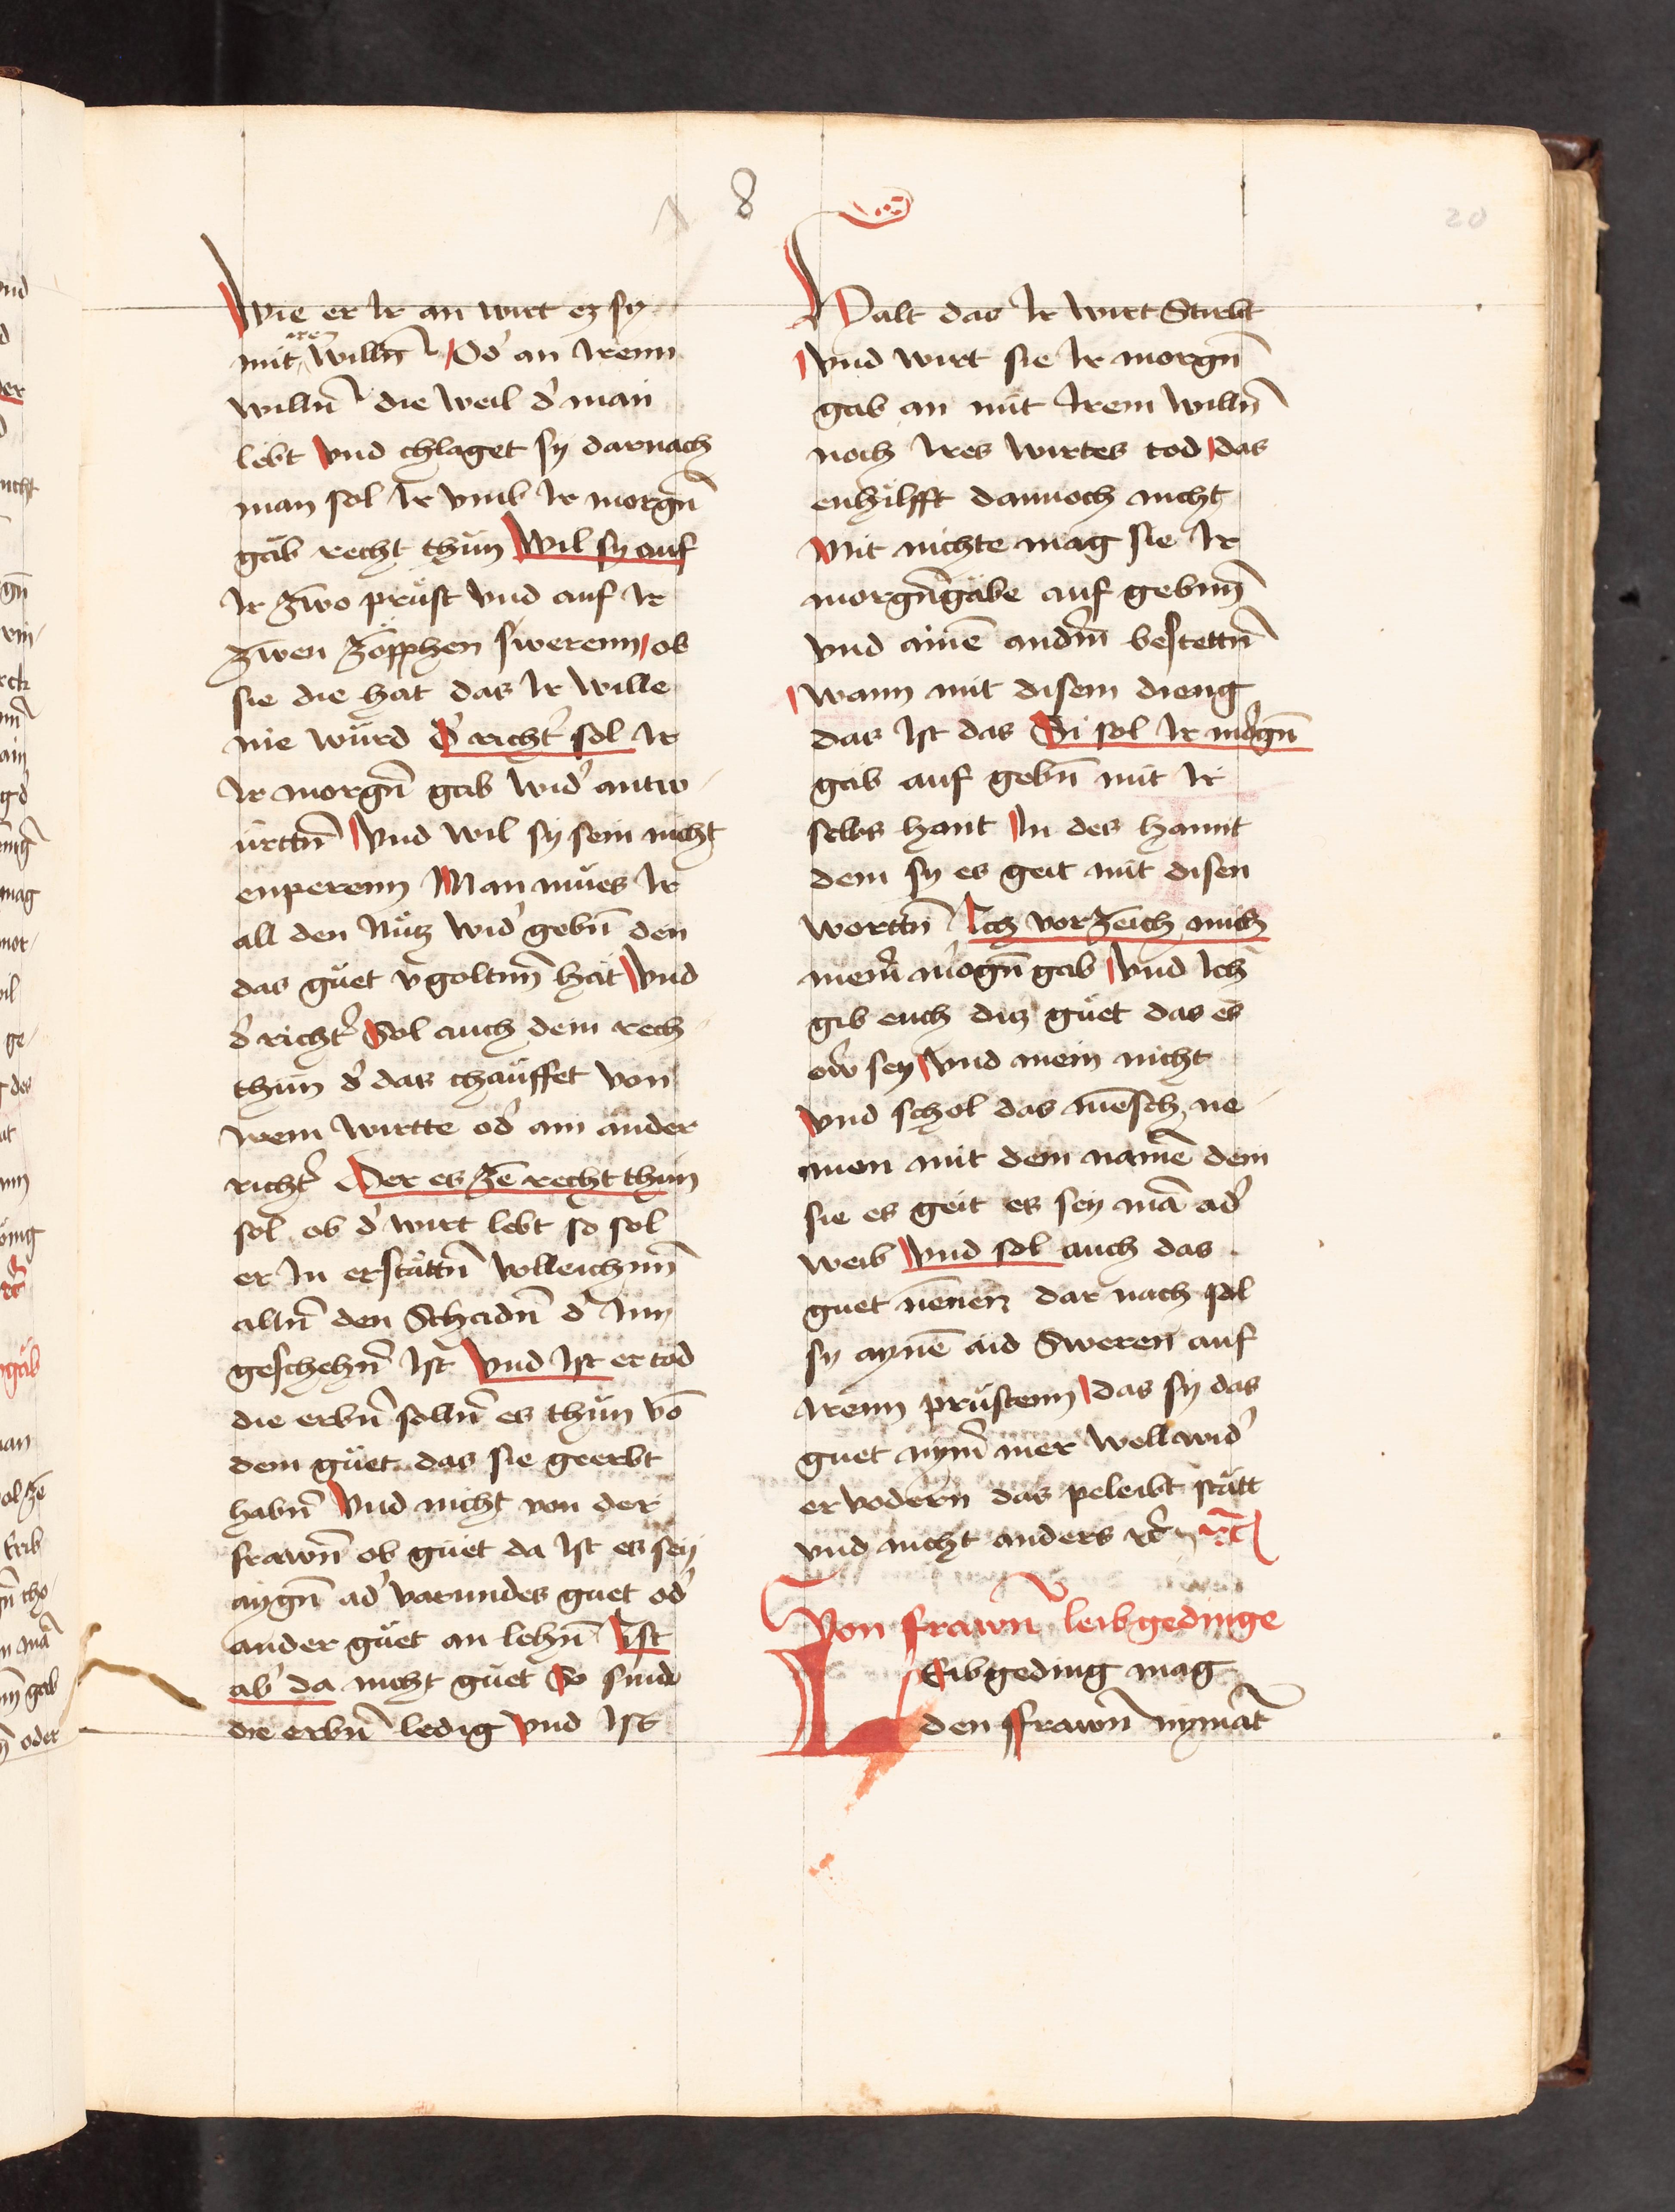 8
20
Wie er Ir an wirt ez sy
mit iren willn̄ Od' an Irenn
willn̄ die weil d' man
lebt vnd chlaget sy darnach
man sol Ir vmb Ir morgn̄
gäb recht thün Wil sy auf
Ir zwo prüst vnd auf Ir
zwen zöpphen swerenn ob
sie die hat das Ir wille
nie würd D' richt' sol Ir
Ir morgn̄ gab wid' antw
ürttn̄ Vnd wil sy sein nicht
enperenn Man mües Ir
all den Nütz wid' gebn̄ den
das güet v'goltnn̄ hat Vnd
d' richt' Sol auch dem rech
thün d' das chauffet von
irem wirtte od' ain ander
richt' Der es ze recht thün
sol ob d' wirt lebt so sol
er In erstattn̄ volleichnn̄
alln̄ den Schadn̄ d' Inn
geschehn̄ Ist Vnd Ist er tod
die erbn̄ solln̄ es thün vō
dem güet das sie geerbt
habn̄ Vnd nicht von der
frawn̄ ob güet da Ist es sey
aygn̄ ad' varundes guet od'
ander güet an lehn̄ Ist
ab' da nicht güet So sind
die erbn̄ ledig vnd Ist
Walt das Ir wirt Stirbt
Vnd wirt sie Ir morgn̄
gab an mit Irem willn̄
noch Ires wirtes tod das
enhilfft dannoch nicht
Mit nichte mag sie Ir
morgn̄gäbe auf gebnn̄
vnd ainē andm̄ bestettn̄
wann mit disem dieng
das Ist das Si sol Ir morgn̄
gab auf gebn̄ mit Ir
selbs hant In des hannt
dem sy es geit mit disen
worttn̄ Ich vorzeich mich
mein' morgn̄ gab Vnd Ich
gib euch diz güet das es
ew' sey Vnd mein nicht
vnd schol das mēsch ne
men mit dem namē dem
sie es geit es sey mā ad'
weib Vnd sol auch das
guet nēnen dar nach sol
sy aynē aid Sweren auf
Irenn prüstenn das sy das
guet nym' mer well wid'
ervodern das peleibt stätt
vnd nicht anders etc' etc
Von frawn̄ leibgedinge
LEibgeding mag
den frawn̄ nymāt